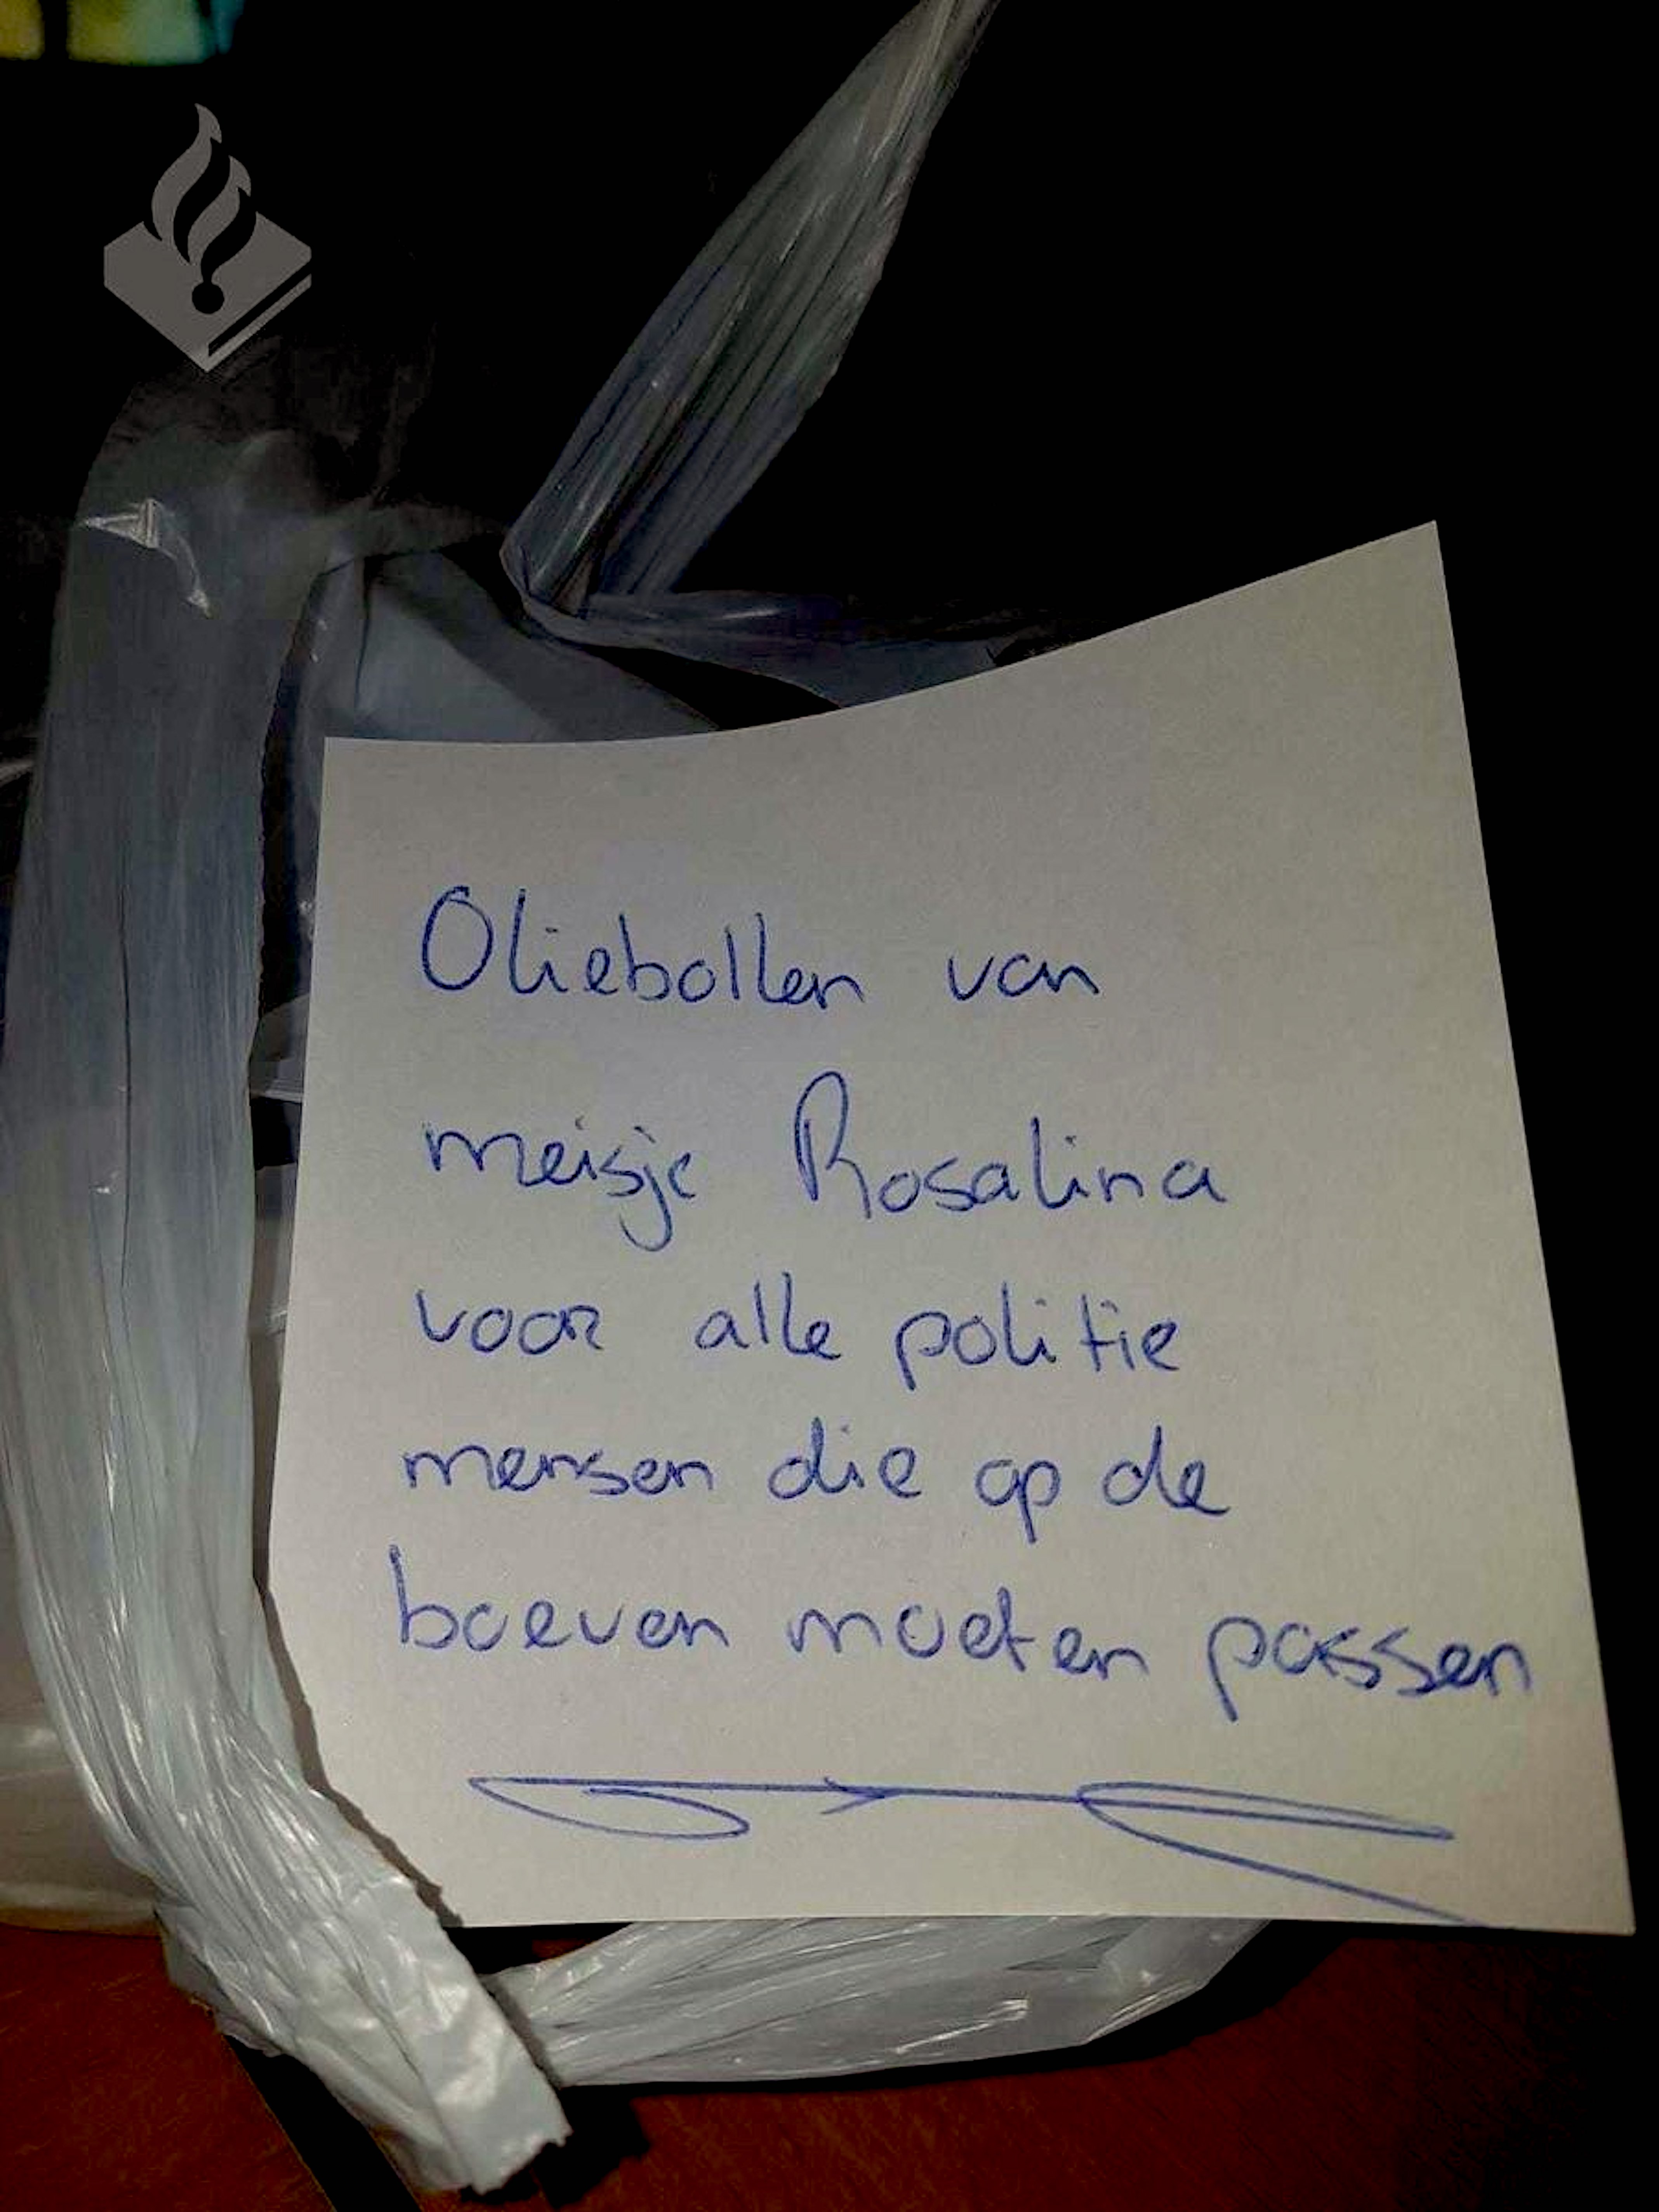 Oliebollen van
meisje Rosalina
voor alle politie
mensen die op de
boeven moeten passen